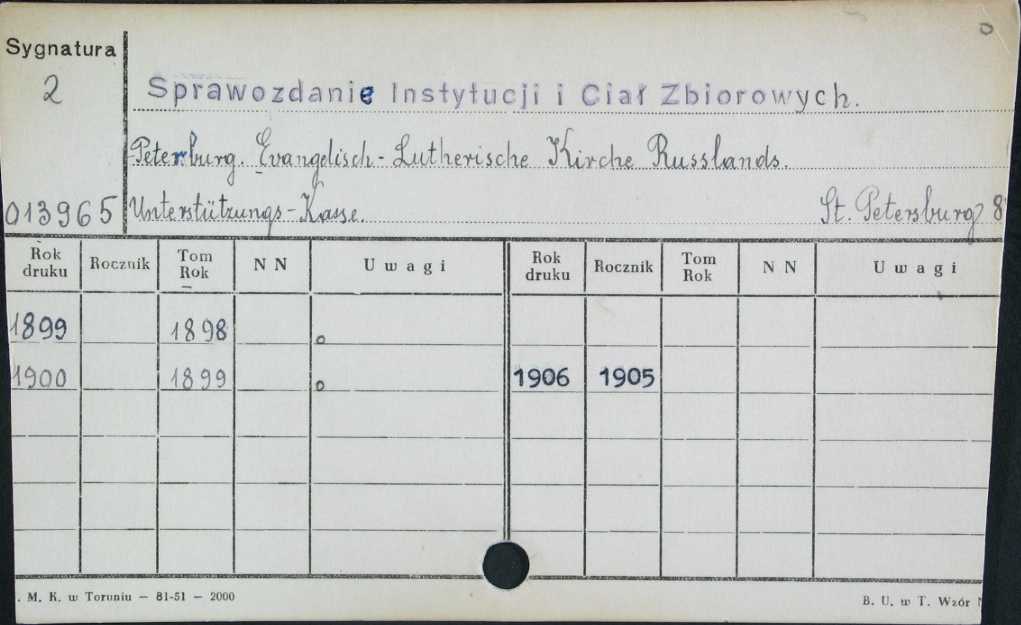 Sygnatura
2
Sprawozdanie Instytucji i Ciał Zbiorowych.
Peterburg. Evangelisch-Lutherische Kirche Russlands.
013965 Unterstützungs-Kasse. St. Petersburg 8
Rok druku Rocznik Tom Rok NN Uwagi Rok druku Rocznik Tom Rok NN Uwagi
1899 1898 o
1900 1899 o 1906 1905
. M. K. w Toruniu — 81-51 — 2000 B. U. w T. Wzór